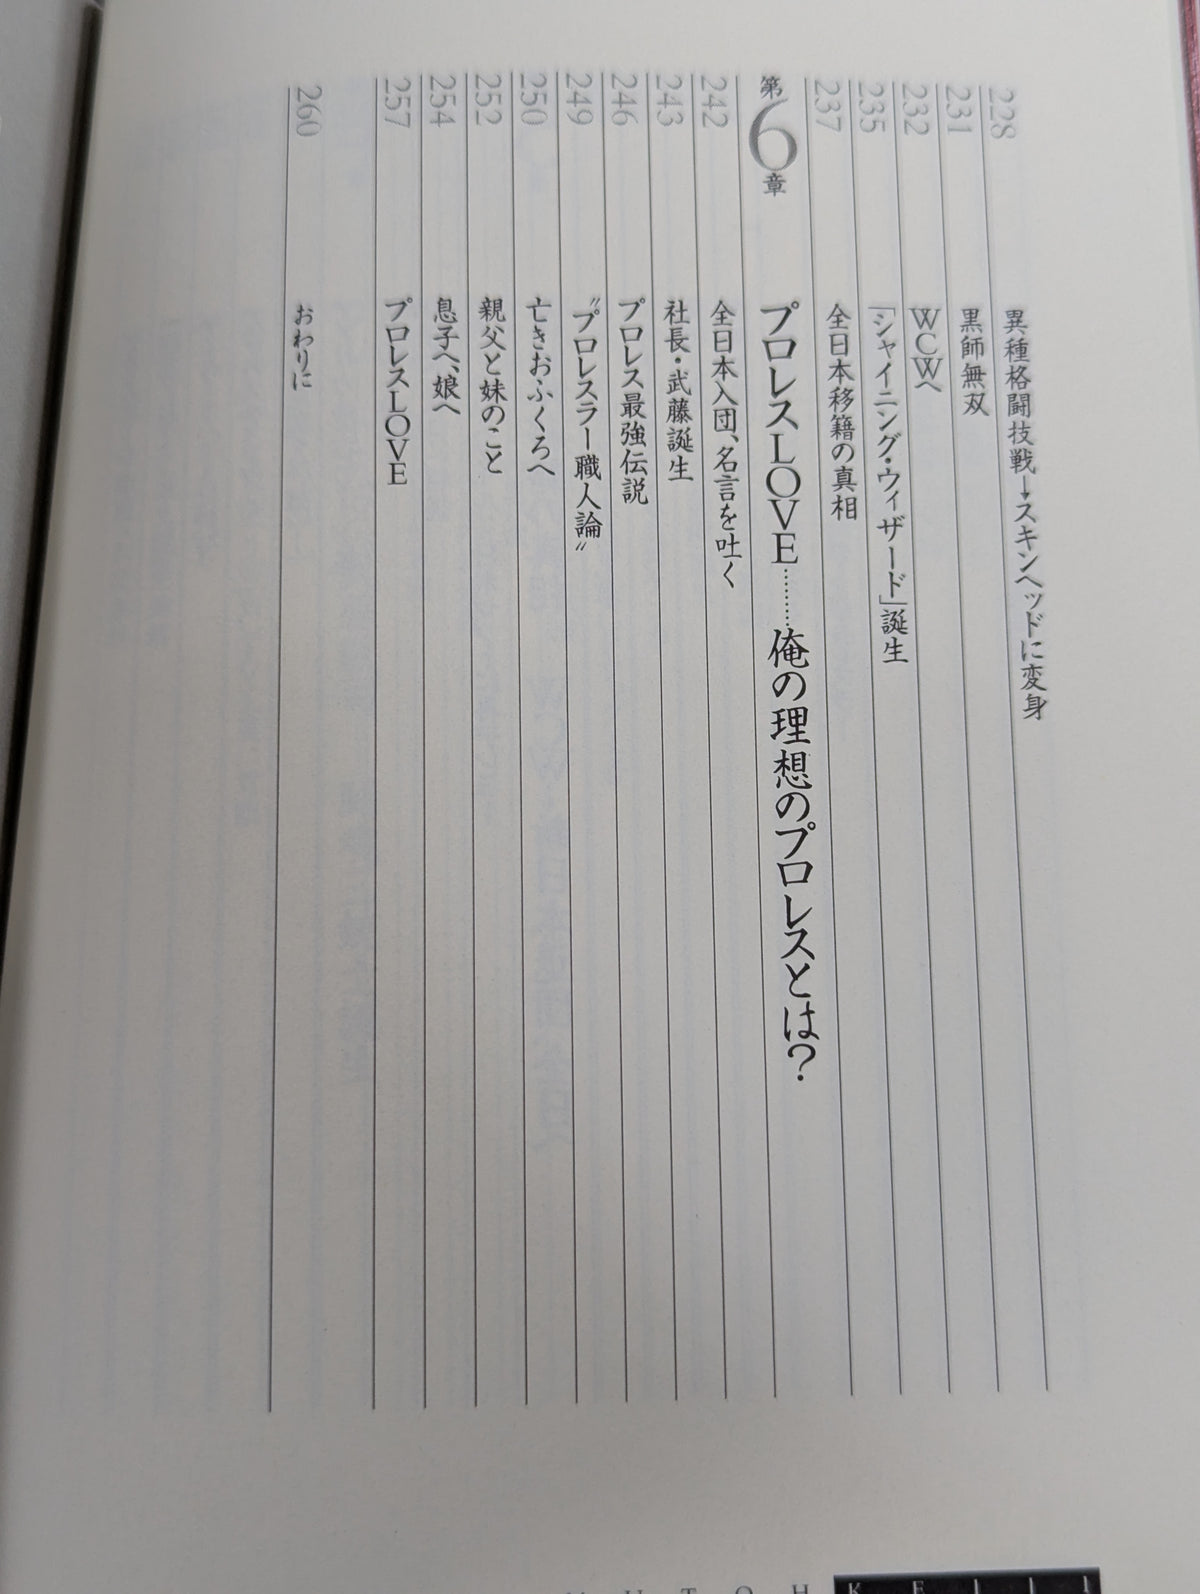 228 異種格闘技戦→スキンヘッドに変身
231 黒師無双
232 WCWへ
235 「シャイニング・ウィザード」誕生
237 全日本移籍の真相
第6章 プロレスLOVE………俺の理想のプロレスとは?
242 全日本入団、名言を吐く
243 社長・武藤誕生
246 プロレス最強伝説
249 〝プロレスラー職人論〟
250 亡きおふくろへ
252 親父と妹のこと
254 息子へ、娘へ
257 プロレスLOVE
260 おわりに
MUTOH KEIJI